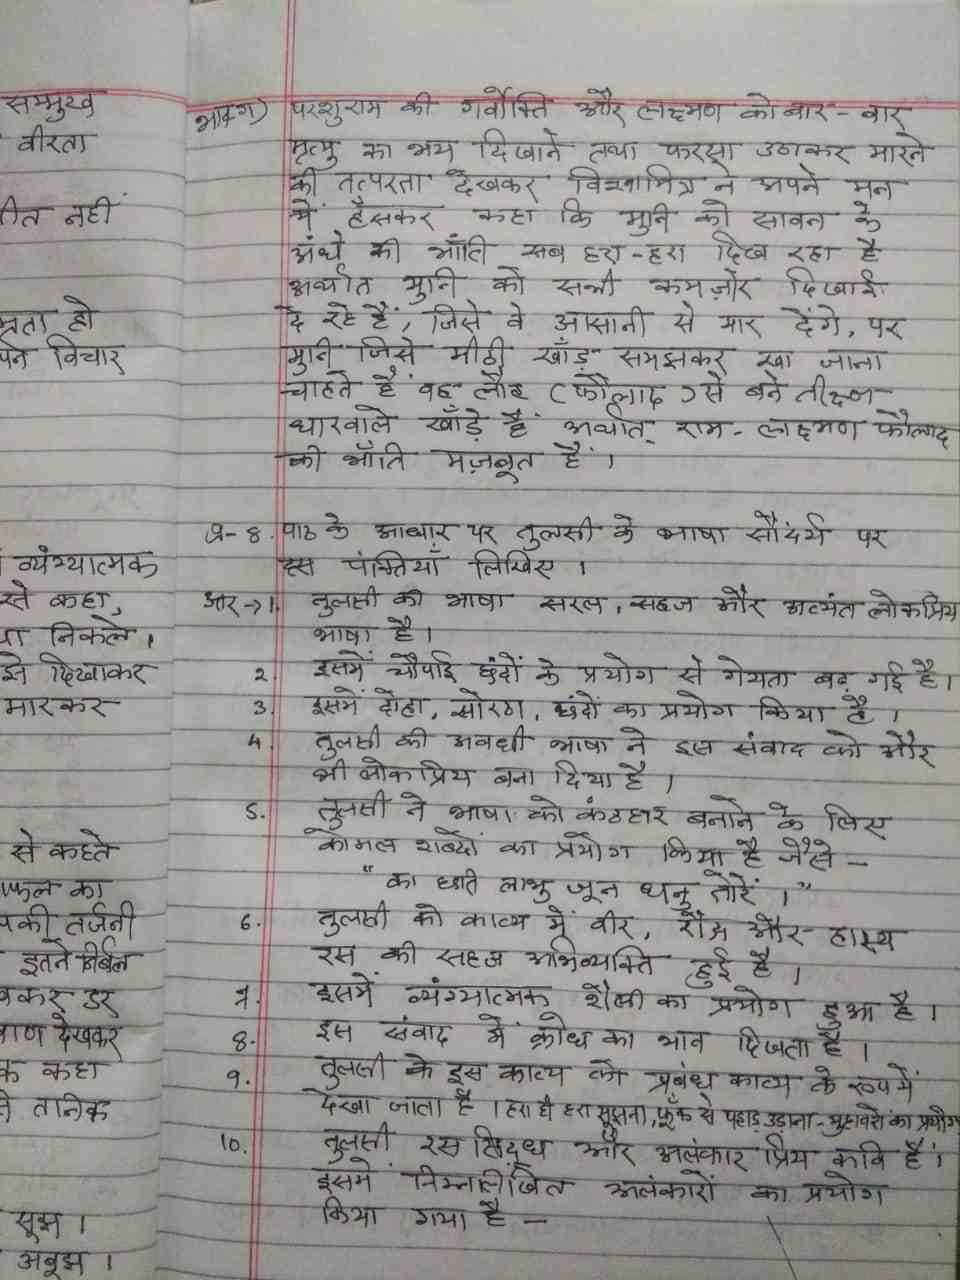 सम्मुख
वीरता
तीत नहीं
व्रता हो
पने विचार
व्यंग्यात्मक
कहा,
निकले।
दिखाकर
मारकर
से कहते
फल का
की तर्जनी
इतने निर्बल
कर डर
बाण देखकर
कहा
तनिक
सूझ।
अबूझ।
भाव ग) परशुराम की गर्वोक्ति और लक्ष्मण को बार - बार
मृत्यु का भय दिखाने तथा फरसा उठाकर मारने
की तत्परता देखकर विश्वामित्र ने अपने मन
में हँसकर कहा कि मुनि को सावन के
अंधे की भाँति सब हरा-हरा दिख रहा है
अर्थात मुनि को सभी कमज़ोर दिखाई
दे रहे हैं, जिसे वे आसानी से मार देंगे, पर
मुनि जिसे मीठी खाँड़ समझकर खा जाना
चाहते हैं वह लौह (फौलाद) से बने तीक्ष्ण
धारवाले खाँड़े हैं अर्थात् राम-लक्ष्मण फौलाद
की भाँति मज़बूत हैं।
प्र-8. पाठ के आधार पर तुलसी के भाषा सौंदर्य पर
दस पंक्तियाँ लिखिए।
उत्तर→1. तुलसी की भाषा सरल, सहज और अत्यंत लोकप्रिय
भाषा है।
2. इसमें चौपाई छंदों के प्रयोग से गेयता बढ़ गई है।
3. इसमें दोहा, सोरठा, छंदों का प्रयोग किया है।
4. तुलसी की अवधी भाषा ने इस संवाद को और
भी लोकप्रिय बना दिया है।
5. तुलसी ने भाषा को कंठहार बनाने के लिए
कोमल शब्दों का प्रयोग किया है जैसे -
"का छति लाभु जून धनु तोरें।"
6. तुलसी को काव्य में वीर, रौद्र और हास्य
रस की सहज अभिव्यक्ति हुई है।
7. इसमें व्यंग्यात्मक शैली का प्रयोग हुआ है।
8. इस संवाद में क्रोध का भाव दिखता है।
9. तुलसी के इस काव्य को प्रबंध काव्य के रूप में
देखा जाता है। हरा ही हरा सूझना, फूँक से पहाड़ उड़ाना-मुहावरों का प्रयोग
10. तुलसी रस सिद्ध और अलंकार प्रिय कवि हैं।
इसमें निम्नलिखित अलंकारों का प्रयोग
किया गया है -